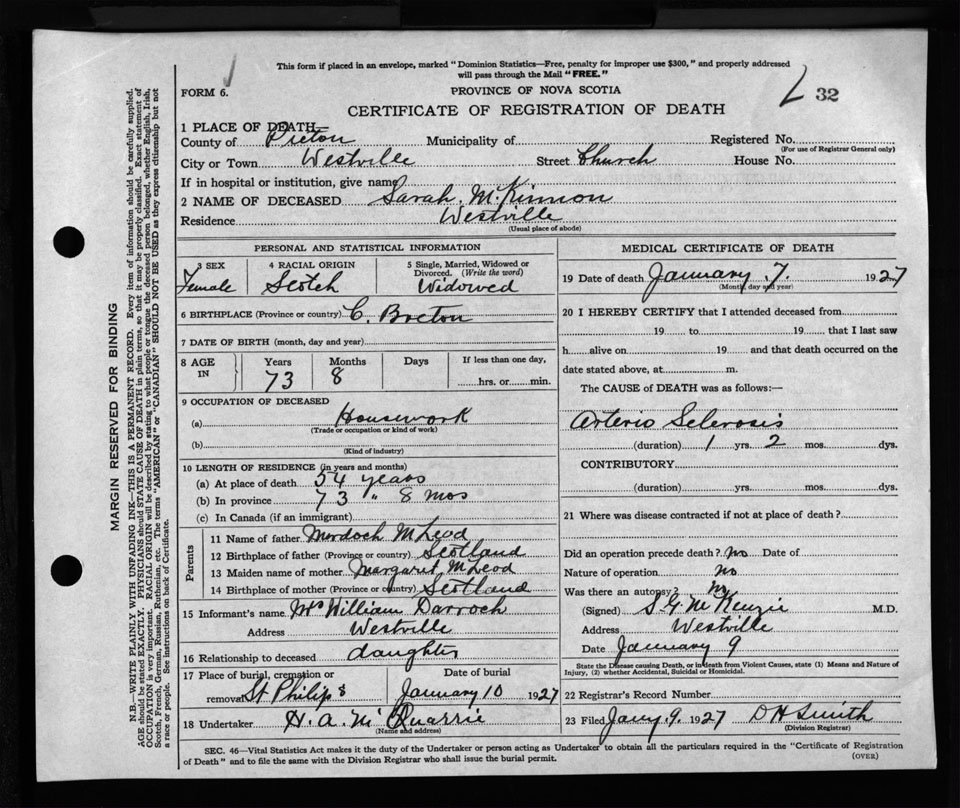 This form if placed in an envelope, marked "Dominion Statistics—Free, penalty for improper use $300," and properly addressed
will pass through the Mail "FREE."
FORM 6.
PROVINCE OF NOVA SCOTIA
32
CERTIFICATE OF REGISTRATION OF DEATH
1 PLACE OF DEATH
County of Pictou Municipality of Registered No.
(For use of Registrar General only)
City or Town Westville Street Church House No.
If in hospital or institution, give name
2 NAME OF DECEASED Sarah McKinnon
Residence Westville
(Usual place of abode)
PERSONAL AND STATISTICAL INFORMATION
3 SEX 4 RACIAL ORIGIN 5 Single, Married, Widowed or
Divorced. (Write the word)
Female Scotch Widowed
6 BIRTHPLACE (Province or country) C. Breton
7 DATE OF BIRTH (month, day and year)
8 AGE IN Years Months Days If less than one day,
73 8 hrs. or min.
9 OCCUPATION OF DECEASED
(a) Housework
(Trade or occupation or kind of work)
(b)
(Kind of industry)
10 LENGTH OF RESIDENCE (in years and months)
(a) At place of death 54 years
(b) In province 73 " 8 mos
(c) In Canada (if an immigrant)
Parents
11 Name of father Mordoch McLeod
12 Birthplace of father (Province or country) Scotland
13 Maiden name of mother Margaret McLeod
14 Birthplace of mother (Province or country) Scotland
15 Informant's name Mrs William Darroch
Address Westville
16 Relationship to deceased daughter
17 Place of burial, cremation or Date of burial
removal St Philip's January 10 1927
18 Undertaker H. A. McQuarrie
(Name and address)
MEDICAL CERTIFICATE OF DEATH
19 Date of death January 7. 1927
(Month, day and year)
20 I HEREBY CERTIFY that I attended deceased from
19 to 19 that I last saw
h alive on 19 and that death occurred on the
date stated above, at m.
The CAUSE of DEATH was as follows:—
Arterio Sclerosis
(duration) 1 yrs. 2 mos. dys.
CONTRIBUTORY
(duration) yrs. mos. dys.
21 Where was disease contracted if not at place of death?
Did an operation precede death? no Date of
Nature of operation no
Was there an autopsy? no
(Signed) S G McKenzie M.D.
Address Westville
Date January 9
State the Disease causing Death, or in death from Violent Causes, state (1) Means and Nature of
Injury, (2) whether Accidental, Suicidal or Homicidal.
22 Registrar's Record Number
23 Filed Jany. 9. 1927 D H Smith
(Division Registrar)
SEC. 46—Vital Statistics Act makes it the duty of the Undertaker or person acting as Undertaker to obtain all the particulars required in the "Certificate of Registration
of Death" and to file the same with the Division Registrar who shall issue the burial permit.
(OVER)
MARGIN RESERVED FOR BINDING
N.B.—WRITE PLAINLY, WITH UNFADING INK—THIS IS A PERMANENT RECORD. Every item of information should be carefully supplied.
AGE should be stated EXACTLY. PHYSICIANS should STATE CAUSE OF DEATH in plain terms, so that it may be properly classified. Exact statement of
OCCUPATION is very important. RACIAL ORIGIN will be described by stating to what people or tongue the deceased person belonged, whether English, Irish,
Scotch, French, German, Russian, Ruthenian, etc. The terms "AMERICAN" or "CANADIAN" SHOULD NOT BE USED as they express citizenship but not
a race or people. See instructions on back of Certificate.